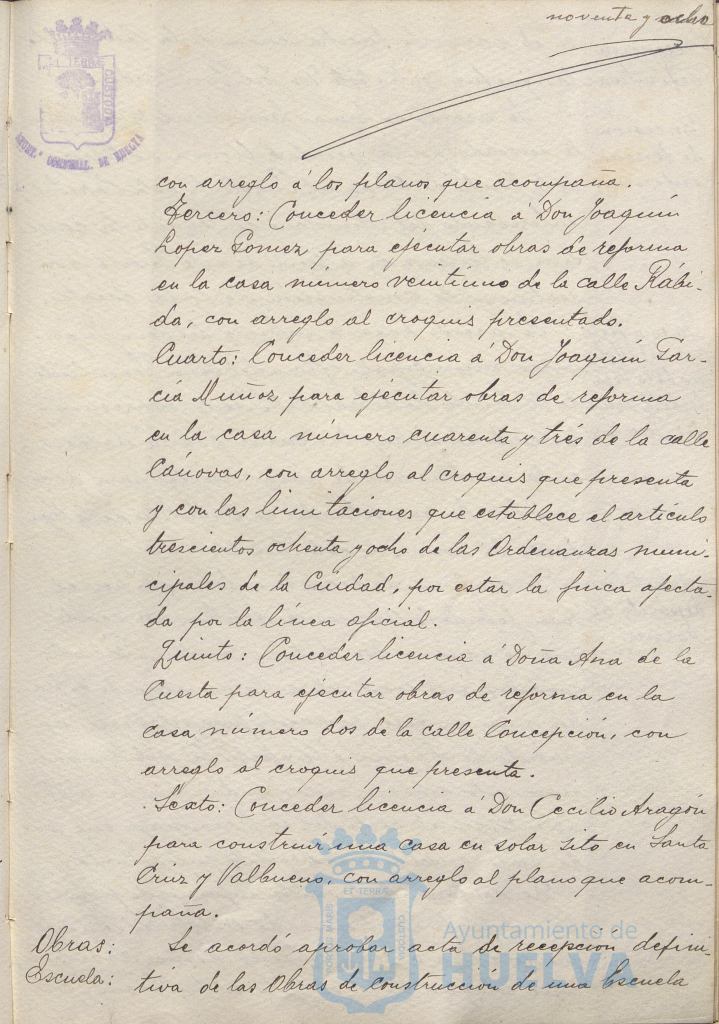 noventa y ocho
ET TERRÆ
CUSTODIA
DE HUELVA
con arreglo á los planos que acompaña.
Tercero: Conceder licencia á Don Joaquín
Lopez Gomez para ejécutar obras de reforma
en la casa número veintiuno de la calle Rábi-
da, con arreglo al croquis presentado.
Cuarto: Conceder licencia á Don Joaquín Gar-
cía Muñoz para ejécutar obras de reforma
en la casa número cuarenta y trés de la calle
Cánovas, con arreglo al croquis que presenta
y con las limitaciones que establece el artículo
trescientos ochenta y ocho de las Ordenanzas muni-
cipales de la Ciudad, por estar la finca afecta-
da por la línea oficial.
Quinto: Conceder licencia á Doña Ana de la
Cuesta para ejécutar obras de reforma en la
casa número dos de la calle Concepción, con
arreglo al croquis que presenta.
Sexto: Conceder licencia á Don Cecilio Aragón
para construir una casa en solar sito en Santa
Cruz y Valbueno, con arreglo al plano que acom-
paña.
Obras:
Escuela:
Se acordó aprobar acta de recepcion defini-
tiva de las Obras de construcción de una Escuela
PORTUS MARIS
ET TERRÆ
CUSTODIA
Ayuntamiento de
HUELVA